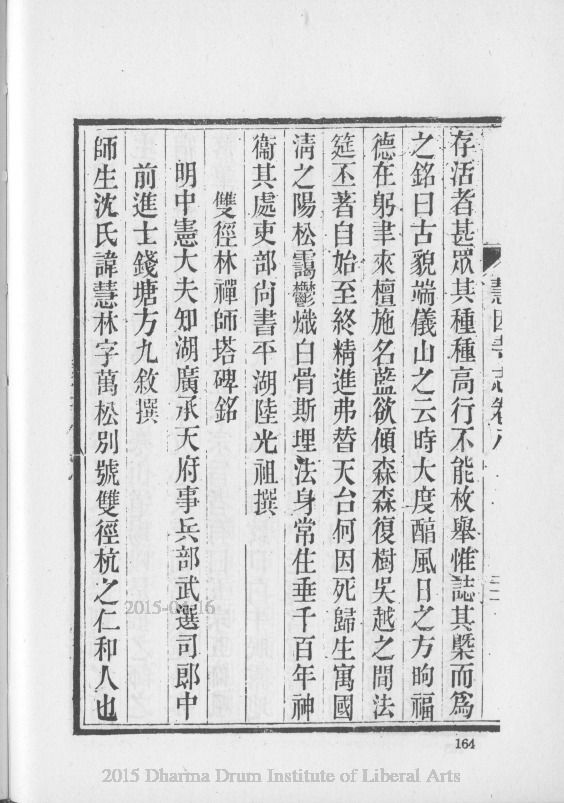 存活者甚眾其種種高行不能枚舉惟誌其槩而為
之銘曰古貌端儀山之云時大度醅風日之方昫福
德在躬聿來檀施名藍欲傾森森復樹吳越之間法
筵丕著自始至終精進弗替天台何因死歸生寓國
淸之陽松靄鬱熾白骨斯埋法身常住垂千百年神
衞其處吏部尚書平湖陸光祖撰
雙徑林禪師塔碑銘
明中憲大夫知湖廣承天府事兵部武選司郎中
前進士錢塘方九敘撰
師生沈氏諱慧林字萬松別號雙徑杭之仁和人也
慧因寺志卷八
二
164
2015 Dharma Drum Institute of Liberal Arts